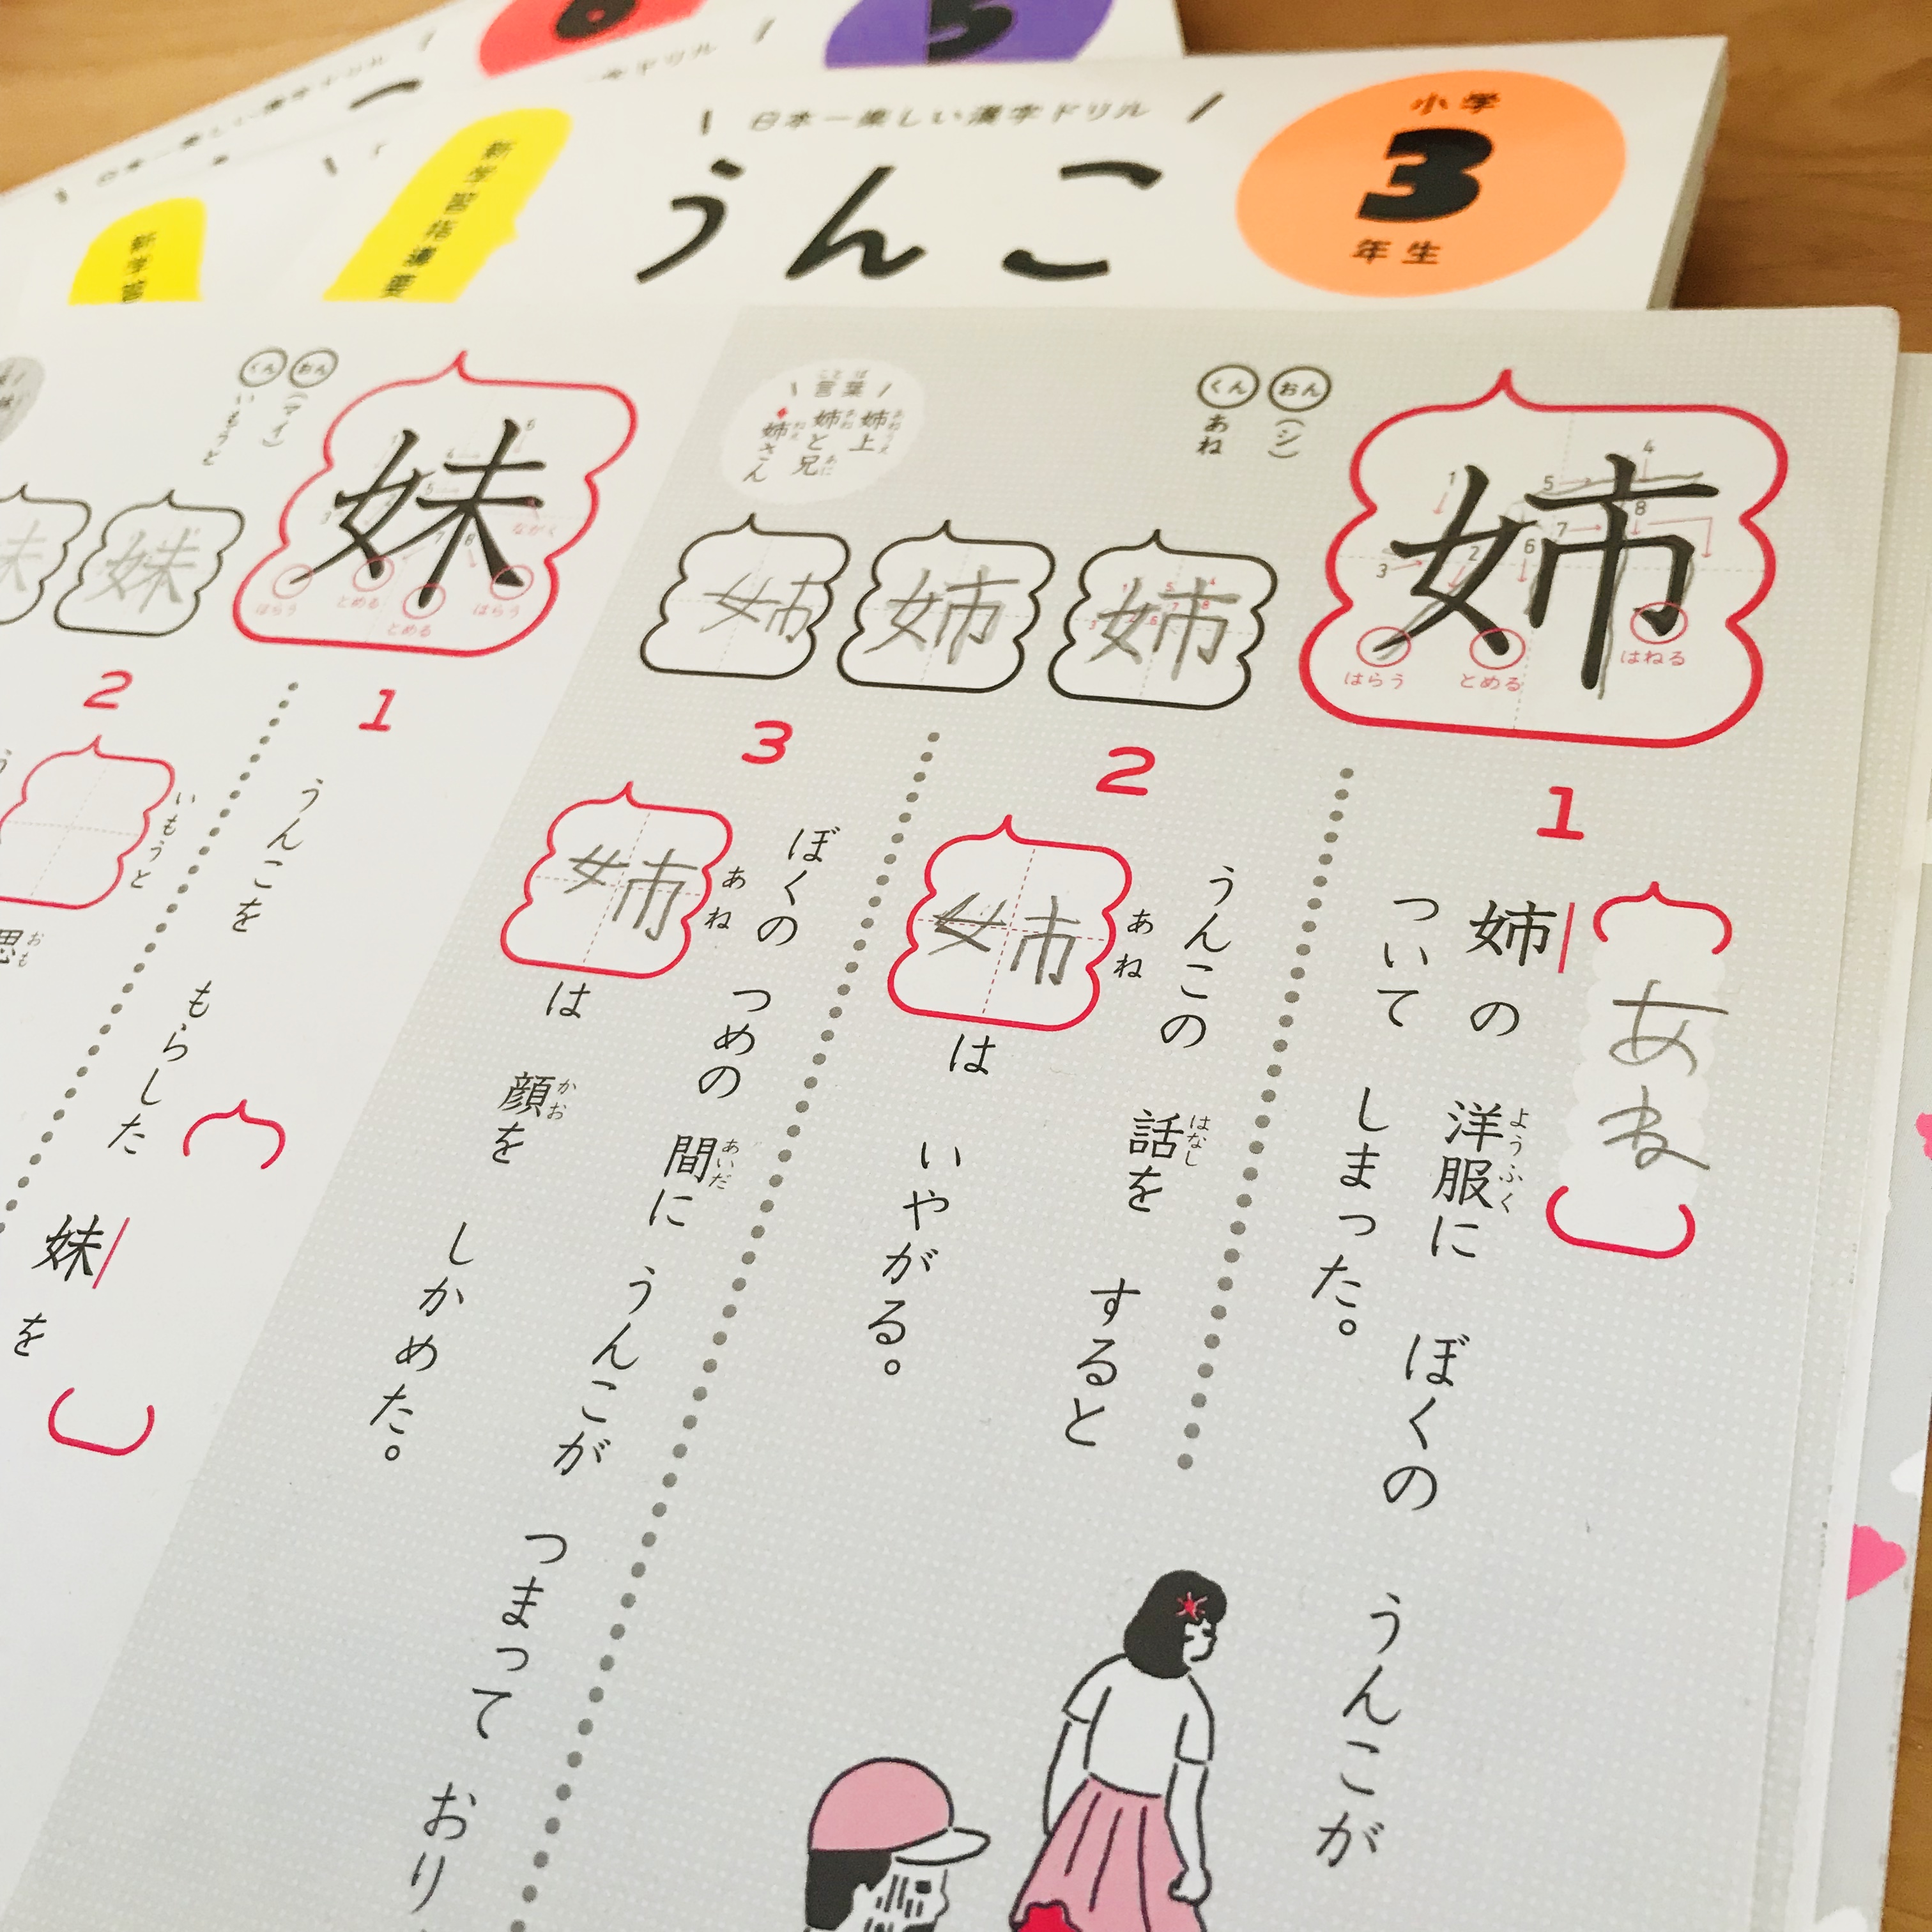 日本一楽しい漢字ドリル
うんこ
小学
3
年生
5
6
新学習指導要
新学習
ドリル
姉
1
2
3
4
5
6
7
8
はらう
とめる
はねる
おん
(シ)
くん
あね
言葉
ことば
姉上
あねうえ
姉と兄
あね
あに
姉さん
ねえ
姉
姉
姉
1
あね
姉の 洋服に ぼくの うんこが
ようふく
ついて しまった。
2
うんこの 話を すると
はなし
姉は いやがる。
あね
3
ぼくの つめの 間に うんこが つまって おり
あいだ
姉は 顔を しかめた。
あね
かお
妹
ながく
はらう
とめる
とめる
はらう
おん
(マイ)
くん
いもうと
妹
妹
1
うんこを もらした
妹を
2
いもうと
思
おも